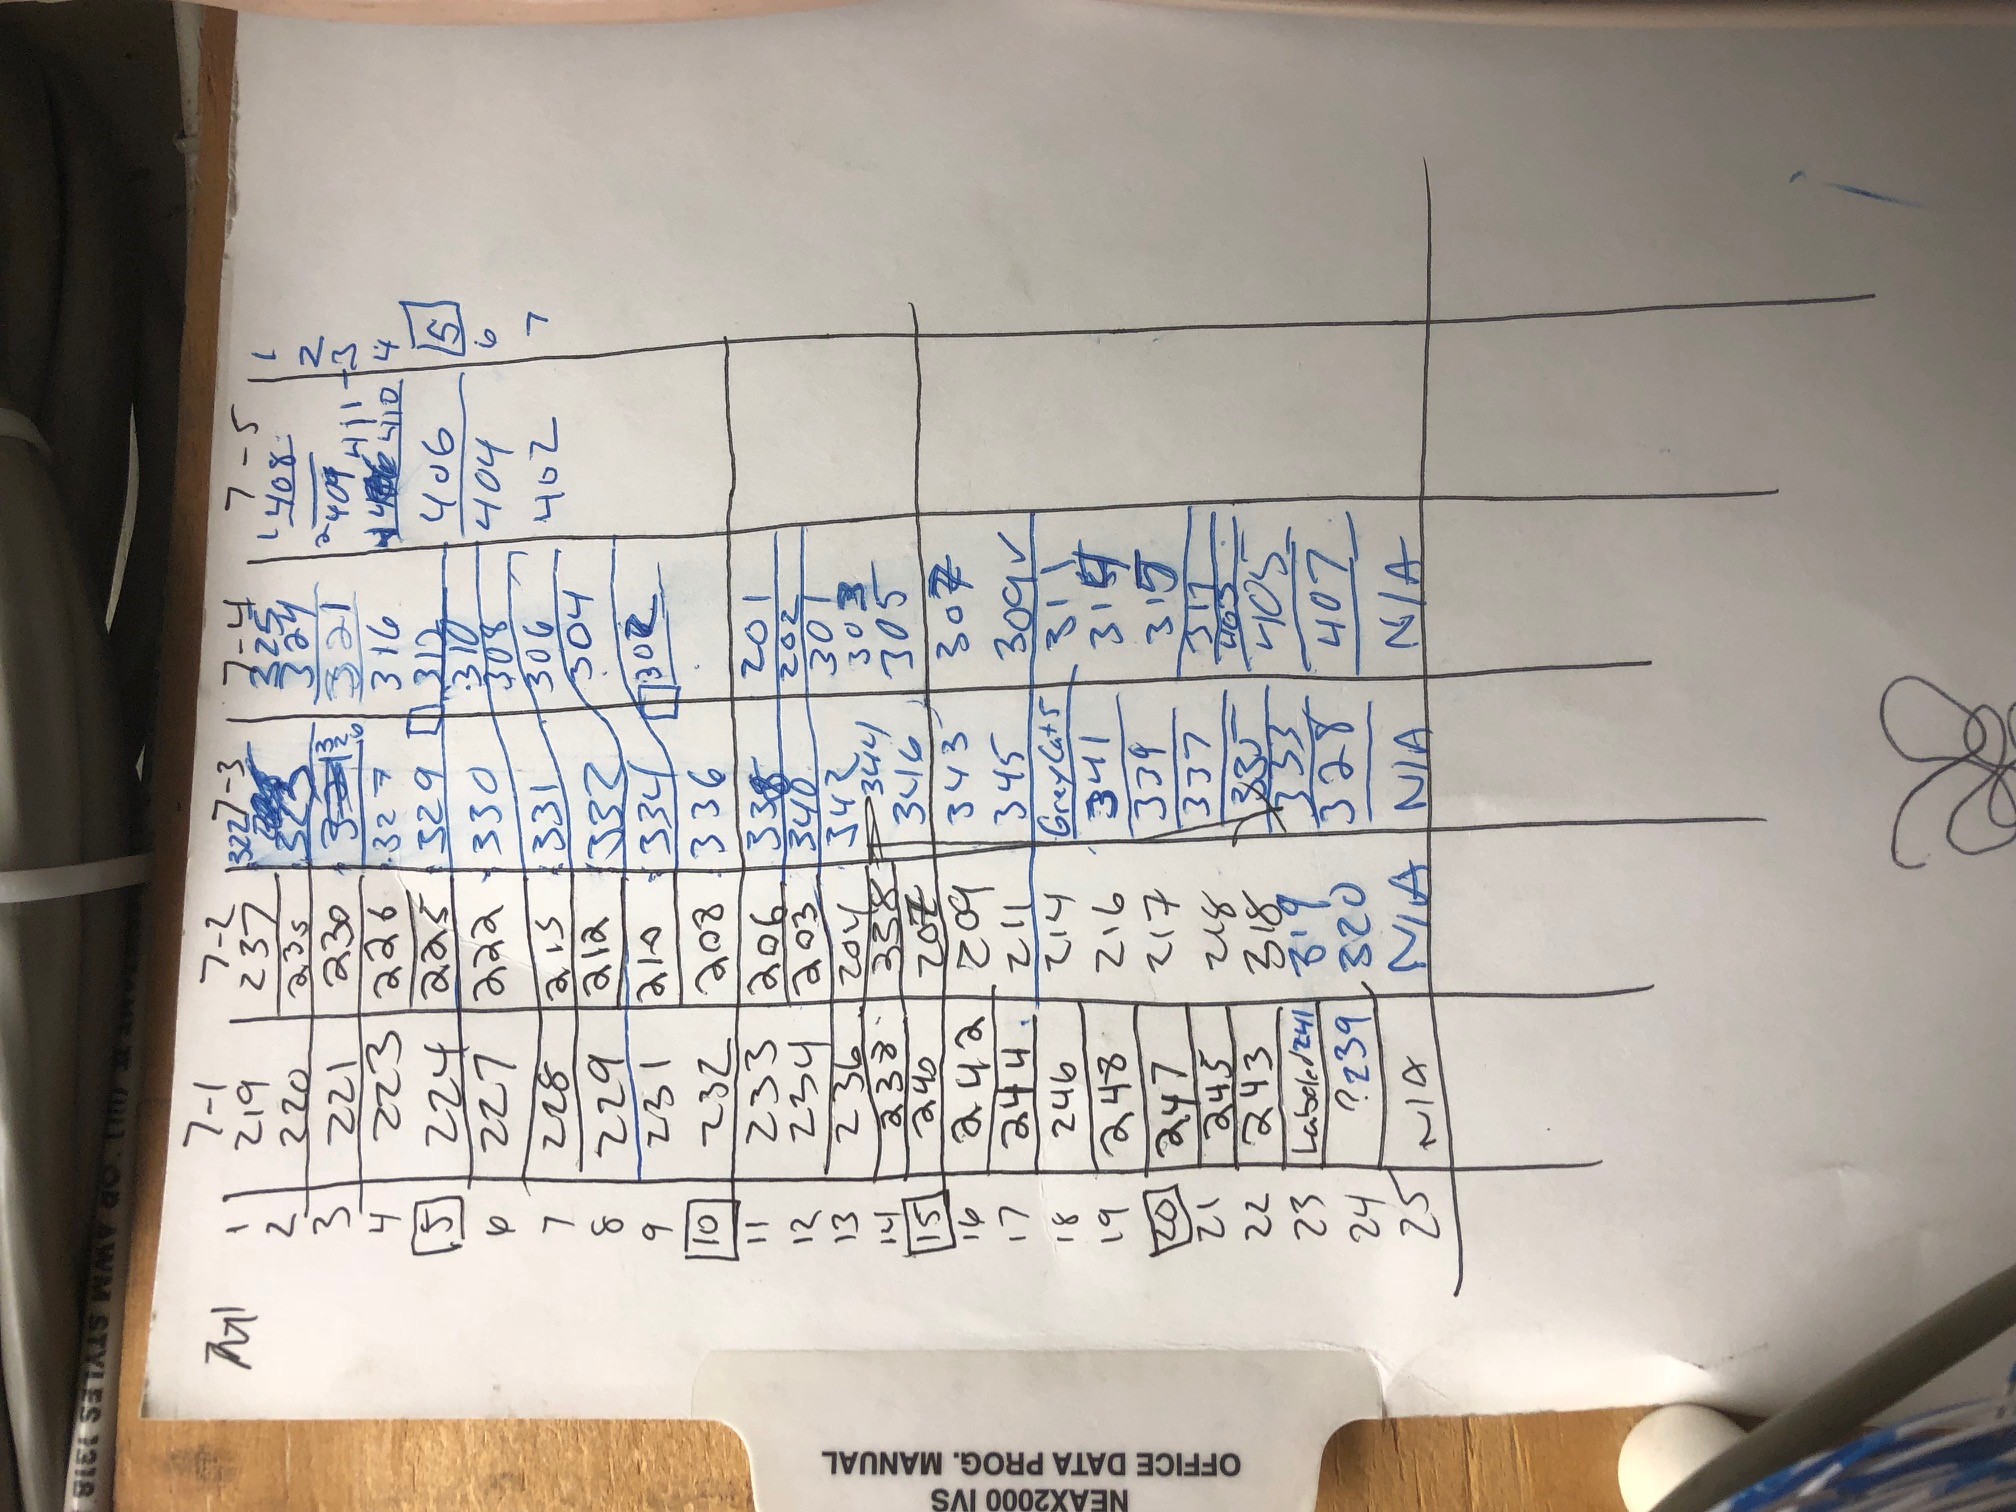 OR AWM STYLES 1318
NEAX2000 IVS
OFFICE DATA PROG. MANUAL
7-1 7-2 7-3 7-4 7-5
1 219 237 322 325 1 408 1
2 220 235 323 324 2 409 2
3 221 230 326 321 411 -3
4 223 226 327 316 410 4
5 224 225 329 312 406 5
6 227 222 330 310 404 6
308
7 228 215 331 306 402 7
8 229 212 332 304
9 231 210 334 302
10 232 208 336
11 233 206 338 201
12 234 203 340 202
13 236 204 342 301
14 238 338 344 303
15 240 207 346 305
16 242 209 343 307
17 244 211 345 309✓
18 246 214 Grey Cat5 311
19 248 216 341 314
20 247 217 339 315
21 245 218 337 317
403
22 243 318 335 405
23 Labeled 241 319 333 407
24 ?239 320 328
25 N/A N/A N/A N/A